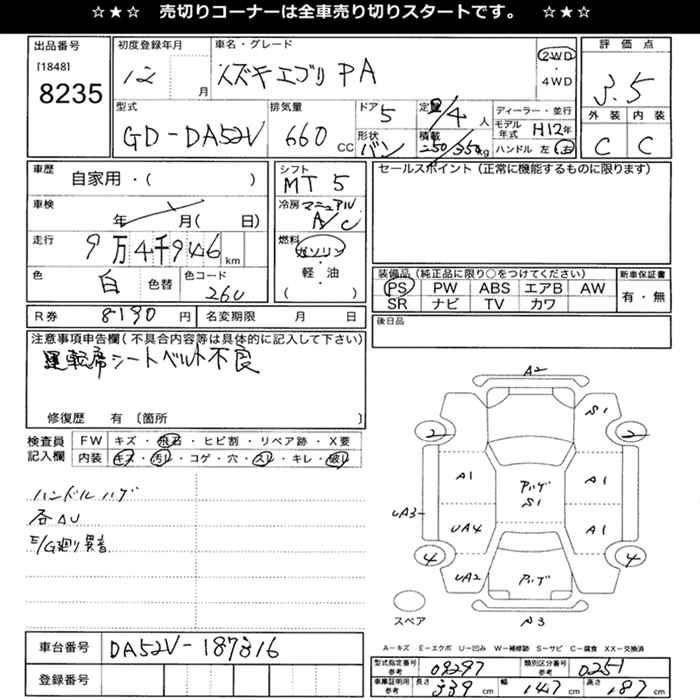 ☆★☆　売切りコーナーは全車売り切りスタートです。　☆★☆
出品番号
[1848]
8235
初度登録年月
12 月
車名・グレード
スズキエブリ PA
2WD
・
4WD
評価点
3.5
型式
GD-DA52V
排気量
660 CC
ドア
5
形状
バン
定員
2/4 人
積載
250/350 kg
ディーラー・並行
モデル年式 H12年
ハンドル 左 右
外装 内装
C C
車歴
自家用・( )
車検
年 月( 日)
走行
9万4千946 km
色
白 色替
色コード
26U
シフト
MT 5
冷房 マニュアル
A/C
燃料
ガソリン
・
軽・油
( )
セールスポイント(正常に機能するものに限ります)
装備品(純正品に限り○をつけてください)
PS PW ABS エアB AW
SR ナビ TV カワ
新車保証書
有・無
R券 8190 円 名変期限 月 日
後日品
注意事項申告欄(不具合内容等は具体的に記入して下さい)
運転席シートベルト不良
修復歴 有〔箇所 〕
検査員
記入欄
FW キズ・飛石・ヒビ割・リペア跡・X要
内装 キズ・汚れ・コゲ・穴・スレ・キレ・破れ
ハンドルハゲ
各AU
E/G廻り異音
A2
S1
2 2
A1 Aハゲ A1
S1
UA3
UA4 A1
4 4
UA2 Aハゲ
スペア
A3
A―キズ E―エクボ U―凹み W―補修跡 S―サビ C―腐食 XX―交換済
車台番号 DA52V-187316
登録番号
型式指定番号 参考 09297 類別区分番号 参考 0251
車庫証明用 参考 長さ 339 cm 幅 147 cm 高さ 187 cm